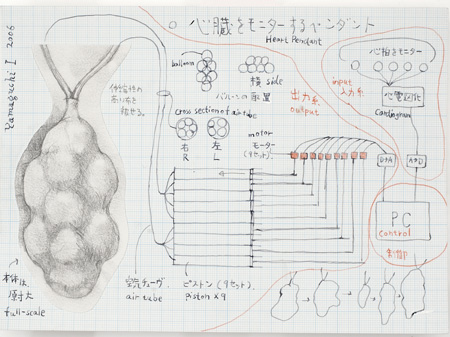 Yamaguchi I 2006
心臓をモニターするペンダント
Heart Pendant
balloon
横 side
バルーンの配置
cross section of air tube
右
R
左
L
motor
モーター
(9セット)
出力系
output
input
入力系
心拍をモニター
心電図化
Cardiogram
D/A
A/D
PC
control
制御
伸縮性の
本体は
原寸大
full-scale
空気チューブ
air tube
ピストン(9セット)
piston x 9